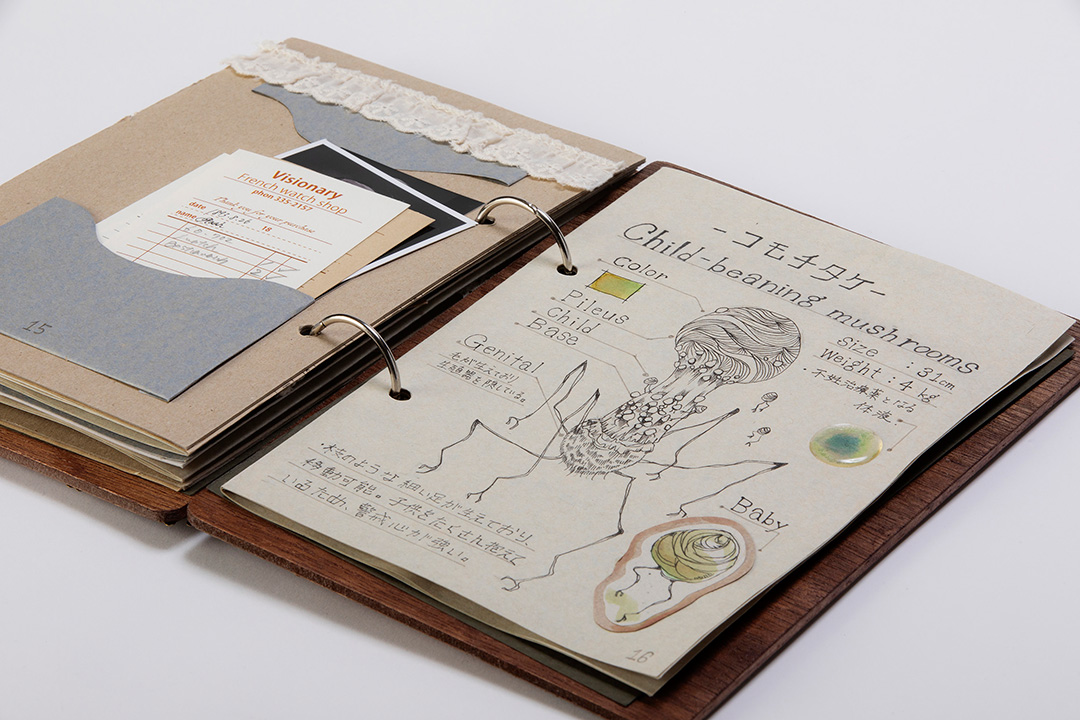 Visionary
French watch shop
phon 335-2157
Thank you for your purchase
date
18
name
15
-コモチタケ-
Child-beaning mushrooms
Color
Pileus
Child
Base
Genital
毛が生えており
生殖器を隠している。
Size : 31cm
Weight : 4 kg
・不妊治療薬となる
体液。
・木のような細い足が生えており
移動可能。子供をたくさん抱えて
いるため、警戒心が強い。
Baby
16